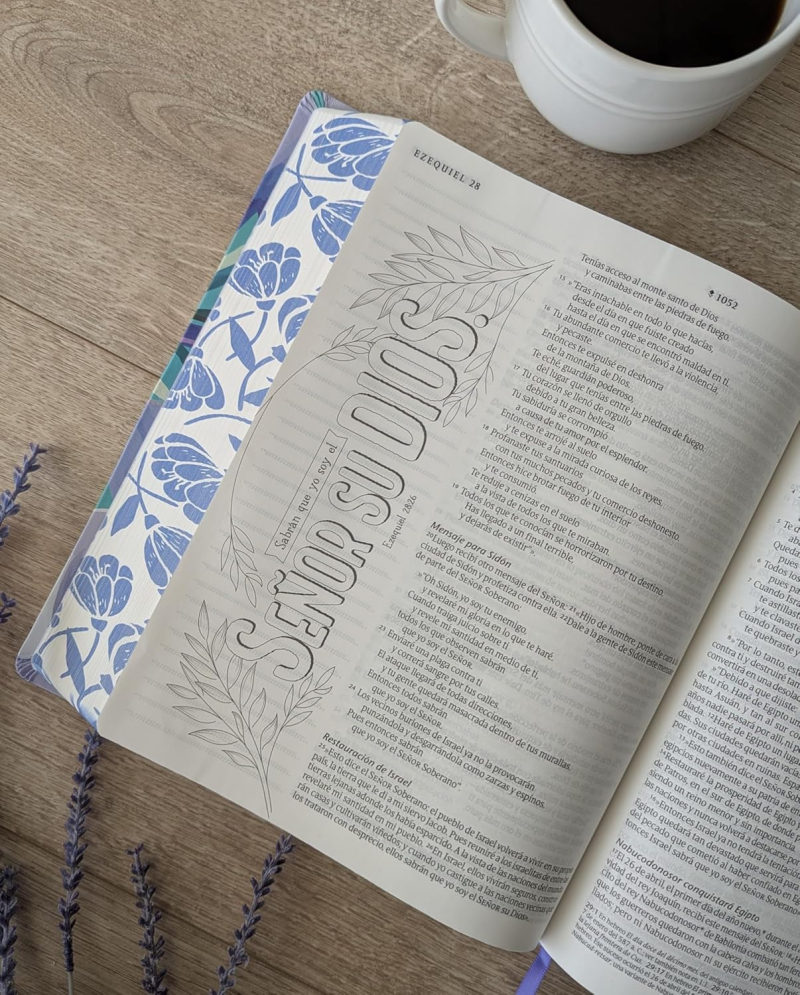 EZEQUIEL 28
1052
Sabrán que yo soy el
SEÑOR SU DIOS.
Ezequiel 28:26
Tenías acceso al monte santo de Dios
y caminabas entre las piedras de fuego.
15 »"Eras intachable en todo lo que hacías,
desde el día en que fuiste creado
hasta el día en que se encontró maldad en ti.
16 Tu abundante comercio te llevó a la violencia,
y pecaste.
Entonces te expulsé en deshonra
de la montaña de Dios.
Te eché, guardián poderoso,
del lugar que tenías entre las piedras de fuego.
17 Tu corazón se llenó de orgullo
debido a tu gran belleza.
Tu sabiduría se corrompió
a causa de tu amor por el esplendor.
Entonces te arrojé al suelo
y te expuse a la mirada curiosa de los reyes.
18 Profanaste tus santuarios
con tus muchos pecados y tu comercio deshonesto.
Entonces hice brotar fuego de tu interior
y te consumió.
Te reduje a cenizas en el suelo
a la vista de todos los que te miraban.
19 Todos los que te conocían se horrorizaron por tu destino.
Has llegado a un final terrible,
y dejarás de existir"».
Mensaje para Sidón
20 Luego recibí otro mensaje del SEÑOR: 21 «Hijo de hombre, ponte de cara a
ciudad de Sidón y profetiza contra ella. 22 Dale a la gente de Sidón este mensaje
de parte del SEÑOR Soberano:
»"Oh Sidón, yo soy tu enemigo,
y revelaré mi gloria en lo que te haré.
Cuando traiga juicio sobre ti
y revele mi santidad en medio de ti,
todos los que observen sabrán
que yo soy el SEÑOR.
23 Enviaré una plaga contra ti
y correrá sangre por tus calles.
El ataque llegará de todas direcciones,
y tu gente quedará masacrada dentro de tus murallas.
Entonces todos sabrán
que yo soy el SEÑOR.
24 Los vecinos burlones de Israel ya no la provocarán
punzándola y desgarrándola como zarzas y espinos.
Pues entonces sabrán
que yo soy el SEÑOR Soberano"
Restauración de Israel
25 »Esto dice el SEÑOR Soberano: el pueblo de Israel volverá a vivir en su propio
país, la tierra que le di a mi siervo Jacob. Pues reuniré a los israelitas de entre las
tierras lejanas adonde los había esparcido. A la vista de las naciones del mundo,
revelaré mi santidad en mi pueblo. 26 En Israel, ellos vivirán seguros,
rán casas y cultivarán viñedos; y cuando yo castigue a las naciones vecinas que
los trataron con desprecio, ellos sabrán que yo soy el SEÑOR su Dios».
5 Te d
6 Todos los
pues
7 Cuando Isra
te astillast
y te clavaste
Cuando Israel
te quebraste y
8 »"Por lo tanto, est
contra ti y destruiré tan
convertirá en una desola
»"Debido a que dijiste:
de tu río. Haré de Egipto un
hasta Asuán, y tan al sur co
años nadie pasará por allí,
blada. 12 Haré de Egipto un luga
das. Sus ciudades quedarán vacías
por otras ciudades en ruinas. Espar
13 »"Pero esto también dice el SEÑOR
egipcios nuevamente a su patria de
14 Restauraré la prosperidad de Egip
de Patros, en el sur de Egipto, de donde
siendo un reino menor y sin importancia.
las naciones y nunca volverá a destacarse
16 »"Entonces Israel ya no tendrá la tentación
Egipto quedará tan devastado que servirá para
del pecado que cometió al haber confiado en Eg
tonces Israel sabrá que yo soy el SEÑOR Soberano
Nabucodonosor conquistará Egipto
17 El 26 de abril, el primer día del año nuevo,* durante el
vidad del rey Joaquín, recibí este mensaje del SEÑOR:
cito del rey Nabucodonosor* de Babilonia combatió tan
que los guerreros quedaron con la cabeza calva y los hom
llados; pero ni Nabucodonosor ni su ejército recibieron